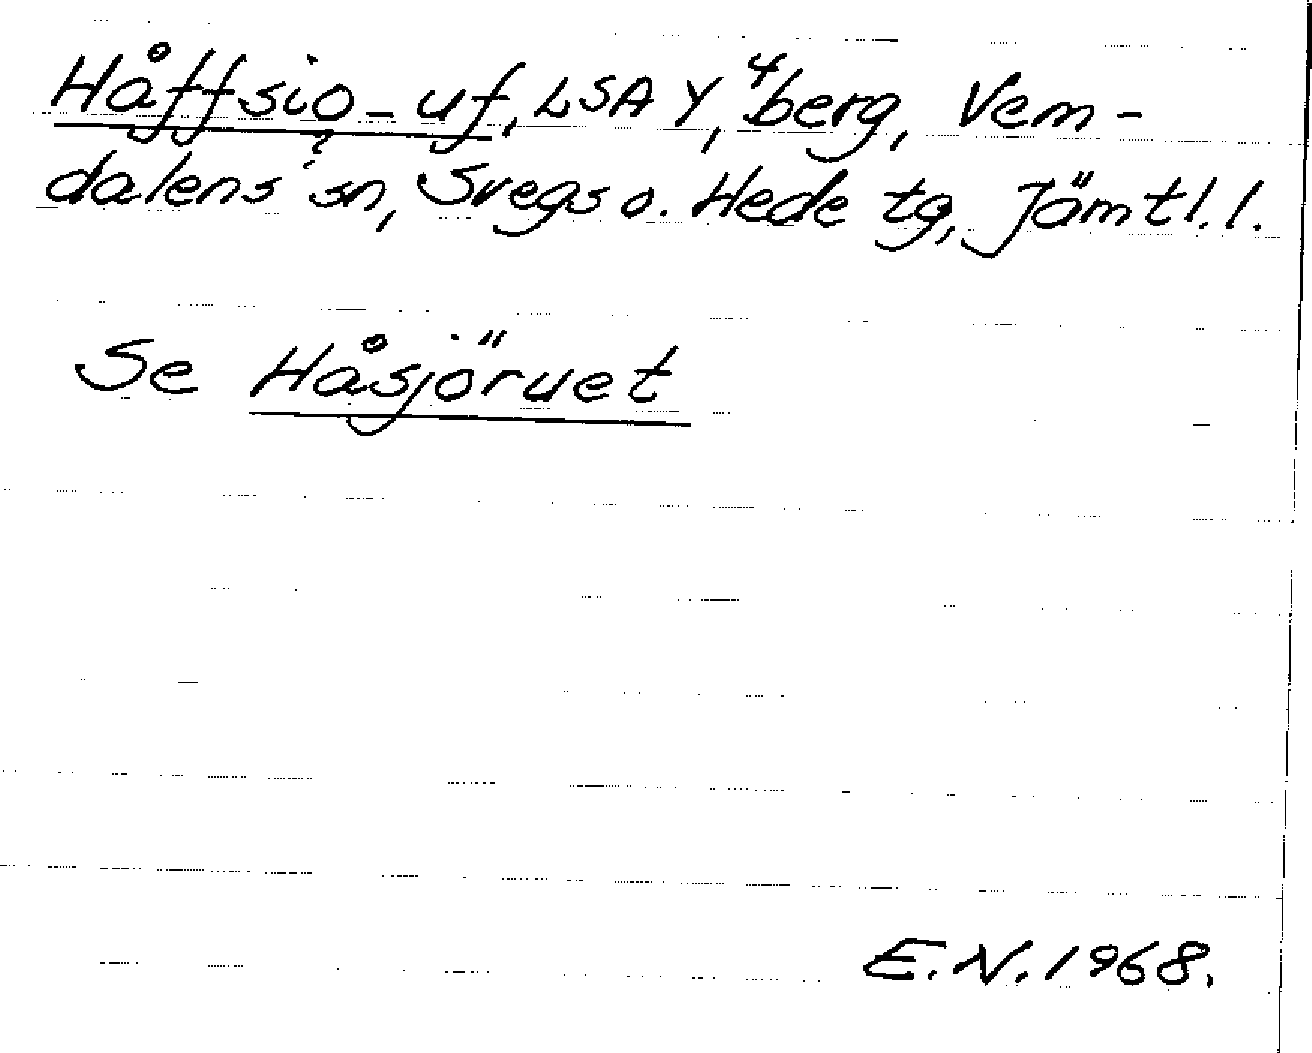 Håffsio-uf, LSA Y⁴, berg, Vem-
dalens sn, Svegs o. Hede tg, Jämtl. l.
Se Håsjöruet
E.N. 1968.